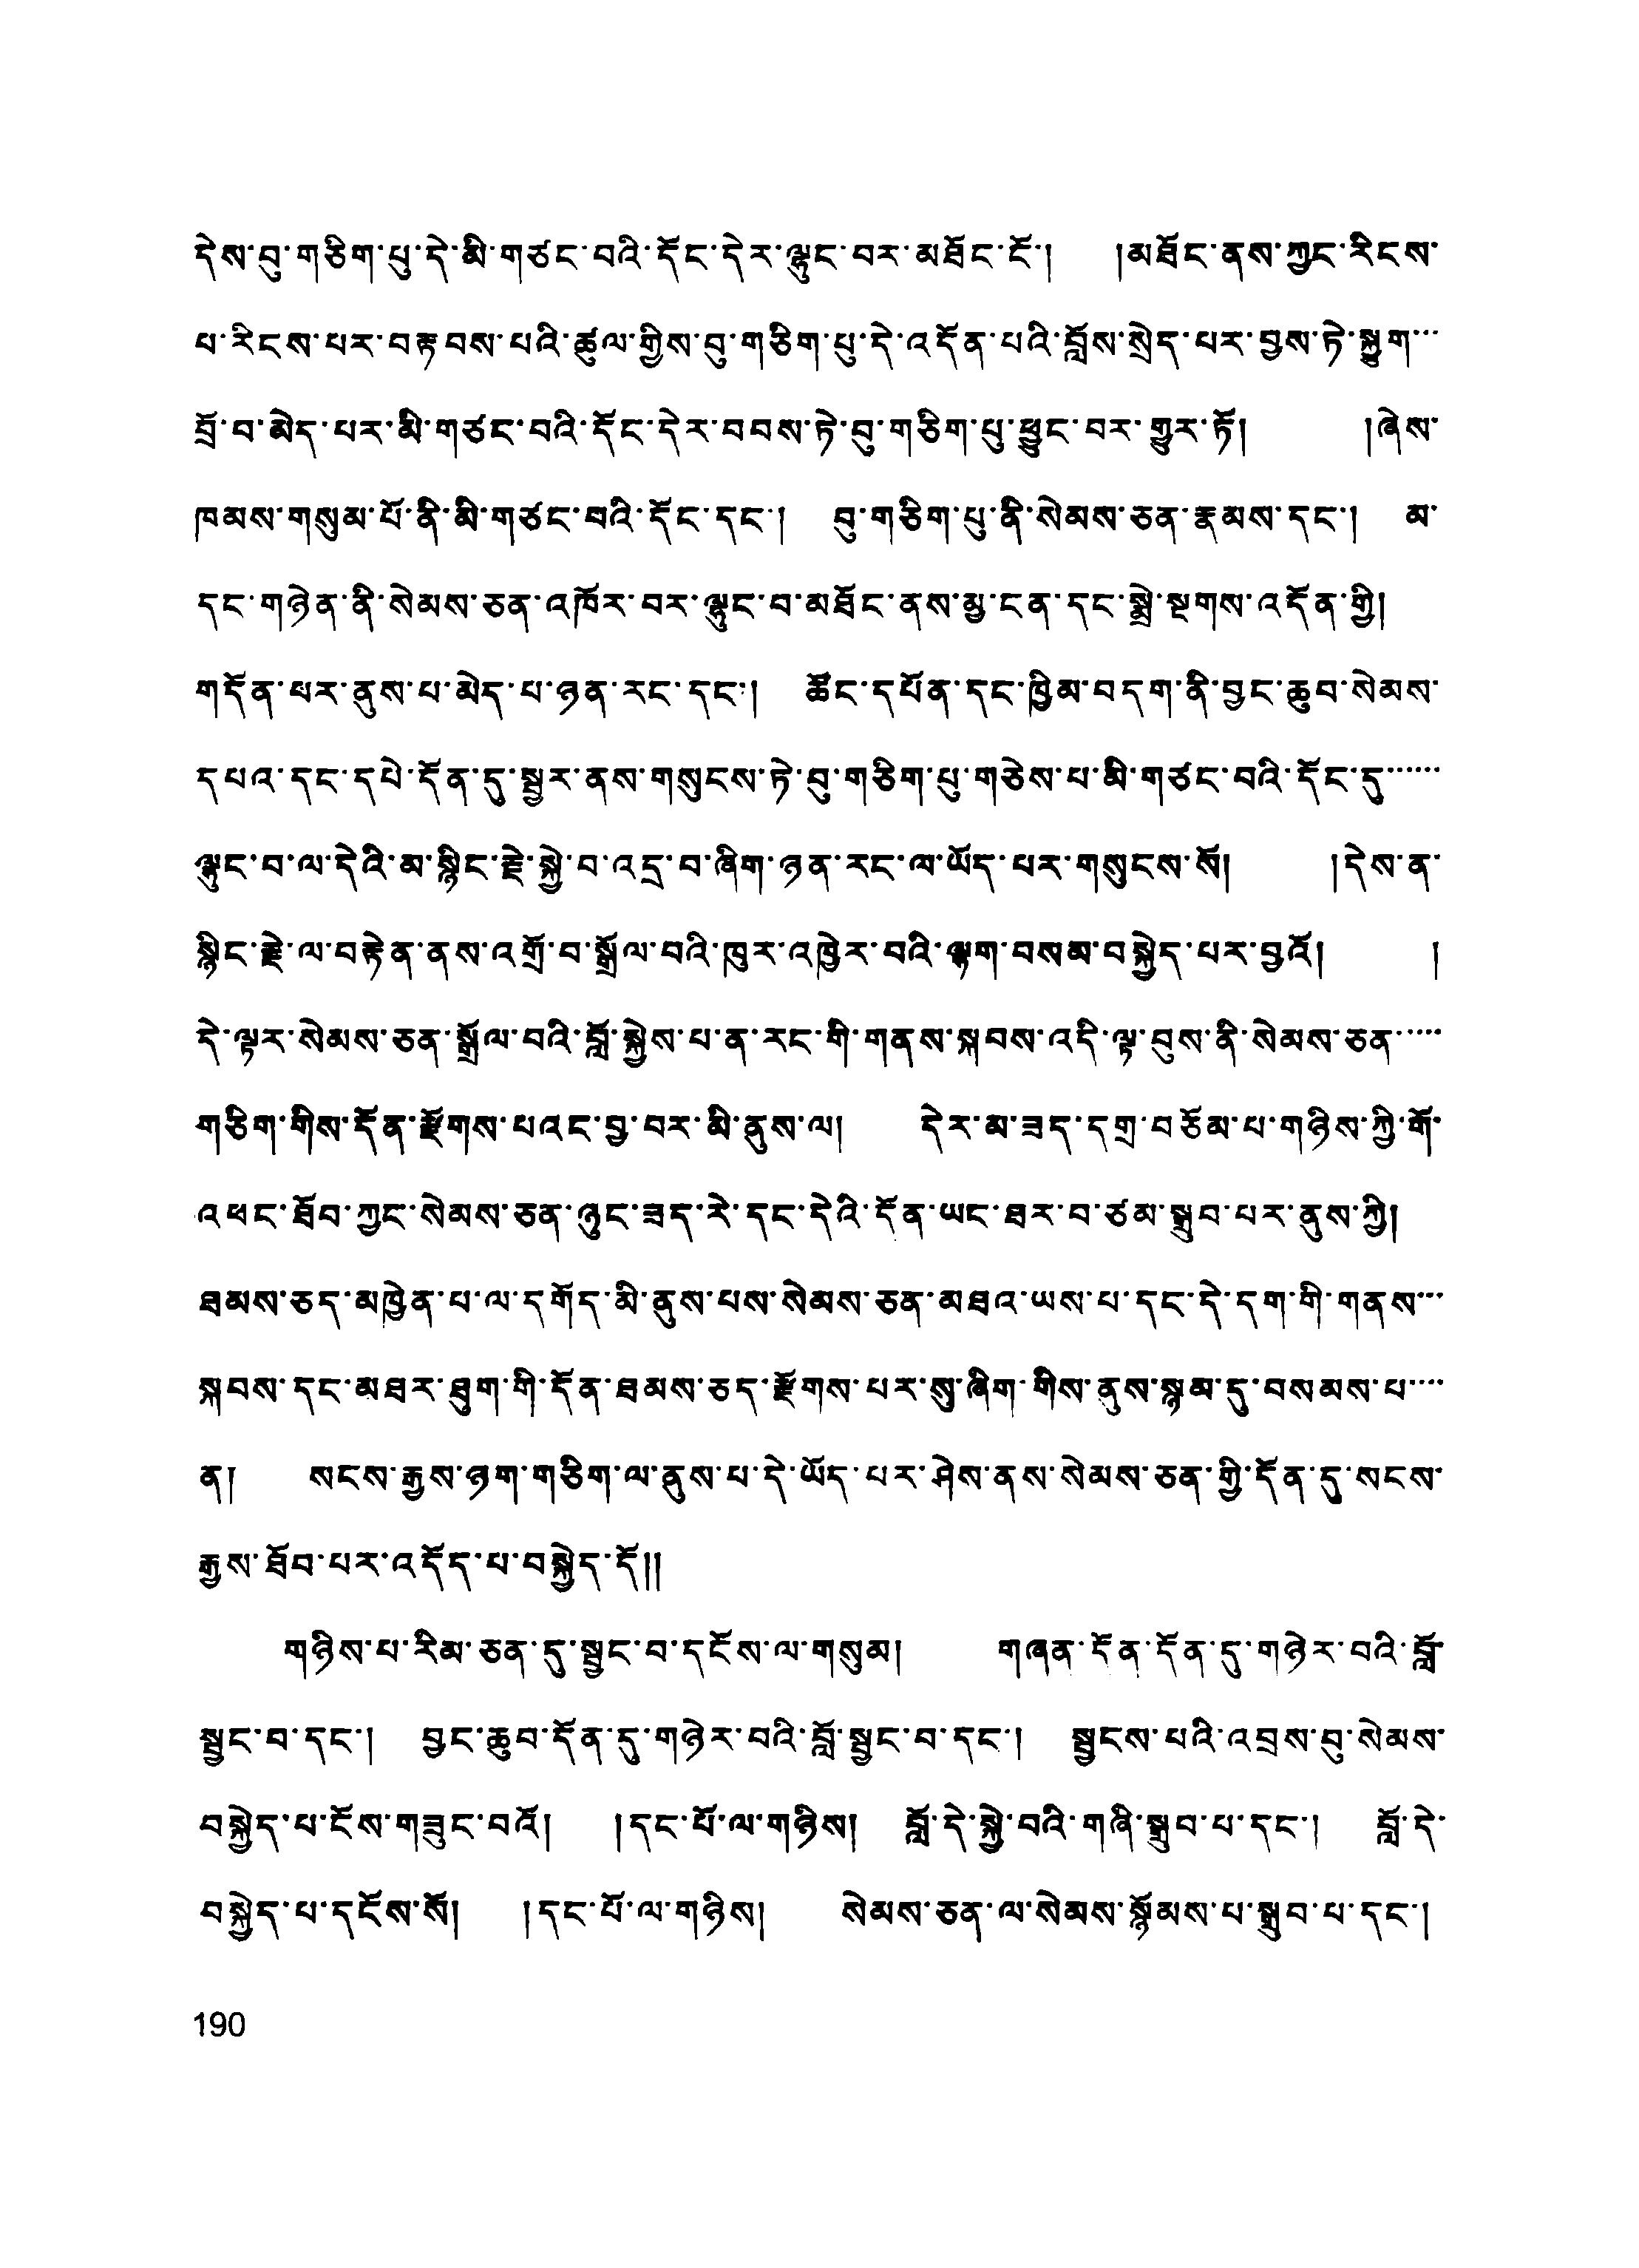 དེས་བུ་གཅིག་པུ་དེ་མི་གཙང་བའི་དོང་དེར་ལྷུང་བར་མཐོང་ངོ་། །མཐོང་ནས་ཀྱང་རིངས་
པ་རིངས་པར་བརྟབས་པའི་ཚུལ་གྱིས་བུ་གཅིག་པུ་དེ་འདོན་པའི་བློས་སྲེད་པར་བྱས་ཏེ་སྐྱུག་་་
བྲོ་བ་མེད་པར་མི་གཙང་བའི་དོང་དེར་བབས་ཏེ་བུ་གཅིག་པུ་ཕྱུང་བར་གྱུར་ཏོ། །ཞེས་
ཁམས་གསུམ་པོ་ནི་མི་གཙང་བའི་དོང་དང་། བུ་གཅིག་པུ་ནི་སེམས་ཅན་རྣམས་དང་། མ་
དང་གཉེན་ནི་སེམས་ཅན་འཁོར་བར་ལྷུང་བ་མཐོང་ནས་མྱ་ངན་དང་སྨྲེ་སྔགས་འདོན་གྱི།
གདོན་པར་ནུས་པ་མེད་པ་ཉན་རང་དང་། ཚོང་དཔོན་དང་ཁྱིམ་བདག་ནི་བྱང་ཆུབ་སེམས་
དཔའ་དང་དཔེ་དོན་དུ་སྦྱར་ནས་གསུངས་ཏེ་བུ་གཅིག་པུ་གཅེས་པ་མི་གཙང་བའི་དོང་དུ་་་་་་
ལྷུང་བ་ལ་དེའི་མ་སྙིང་རྗེ་སྐྱེ་བ་འདྲ་བ་ཞིག་ཉན་རང་ལ་ཡོད་པར་གསུངས་སོ། །དེས་ན་
སྙིང་རྗེ་ལ་བརྟེན་ནས་འགྲོ་བ་སྒྲོལ་བའི་ཁུར་འཁྱེར་བའི་ལྷག་བསམ་བསྐྱེད་པར་བྱའོ། །
དེ་ལྟར་སེམས་ཅན་སྒྲོལ་བའི་བློ་སྐྱེས་པ་ན་རང་གི་གནས་སྐབས་འདི་ལྟ་བུས་ནི་སེམས་ཅན་་་་་
གཅིག་གིས་དོན་རྫོགས་པའང་བྱ་བར་མི་ནུས་ལ། དེར་མ་ཟད་དགྲ་བཅོམ་པ་གཉིས་ཀྱི་གོ་
འཕང་ཐོབ་ཀྱང་སེམས་ཅན་ཉུང་ཟད་རེ་དང་དེའི་དོན་ཡང་ཐར་བ་ཙམ་སྒྲུབ་པར་ནུས་ཀྱི།
ཐམས་ཅད་མཁྱེན་པ་ལ་དགོད་མི་ནུས་པས་སེམས་ཅན་མཐའ་ཡས་པ་དང་དེ་དག་གི་གནས་་་
སྐབས་དང་མཐར་ཐུག་གི་དོན་ཐམས་ཅད་རྫོགས་པར་སུ་ཞིག་གིས་ནུས་སྙམ་དུ་བསམས་པ་་་་
ན། སངས་རྒྱས་ཉག་གཅིག་ལ་ནུས་པ་དེ་ཡོད་པར་ཤེས་ནས་སེམས་ཅན་གྱི་དོན་དུ་སངས་
རྒྱས་ཐོབ་པར་འདོད་པ་བསྐྱེད་དོ།།
གཉིས་པ་རིམ་ཅན་དུ་སྦྱང་བ་དངོས་ལ་གསུམ། གཞན་དོན་དོན་དུ་གཉེར་བའི་བློ་
སྦྱང་བ་དང་། བྱང་ཆུབ་དོན་དུ་གཉེར་བའི་བློ་སྦྱང་བ་དང་། སྦྱངས་པའི་འབྲས་བུ་སེམས་
བསྐྱེད་པ་ངོས་གཟུང་བའོ། །དང་པོ་ལ་གཉིས། བློ་དེ་སྐྱེ་བའི་གཞི་སྒྲུབ་པ་དང་། བློ་དེ་
བསྐྱེད་པ་དངོས་སོ། །དང་པོ་ལ་གཉིས། སེམས་ཅན་ལ་སེམས་སྙོམས་པ་སྒྲུབ་པ་དང་།
190